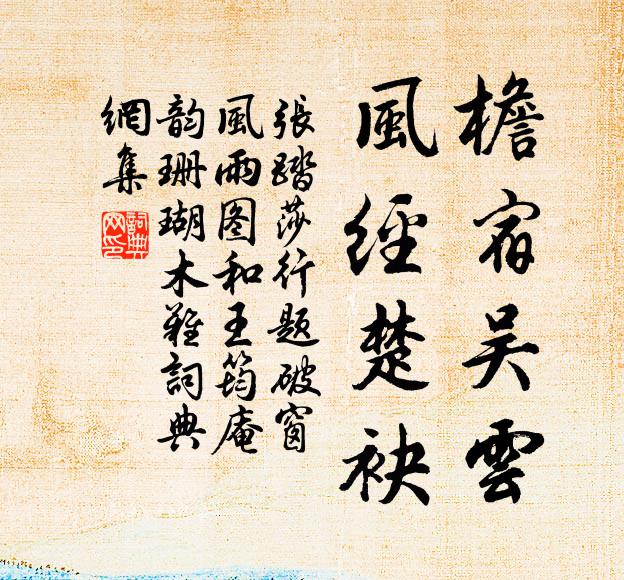 檐宿吴雲
風經楚袂
張踏莎行題破窗
風雨图和王筠庵
韵珊瑚木難詞典
網集
詞典
网印